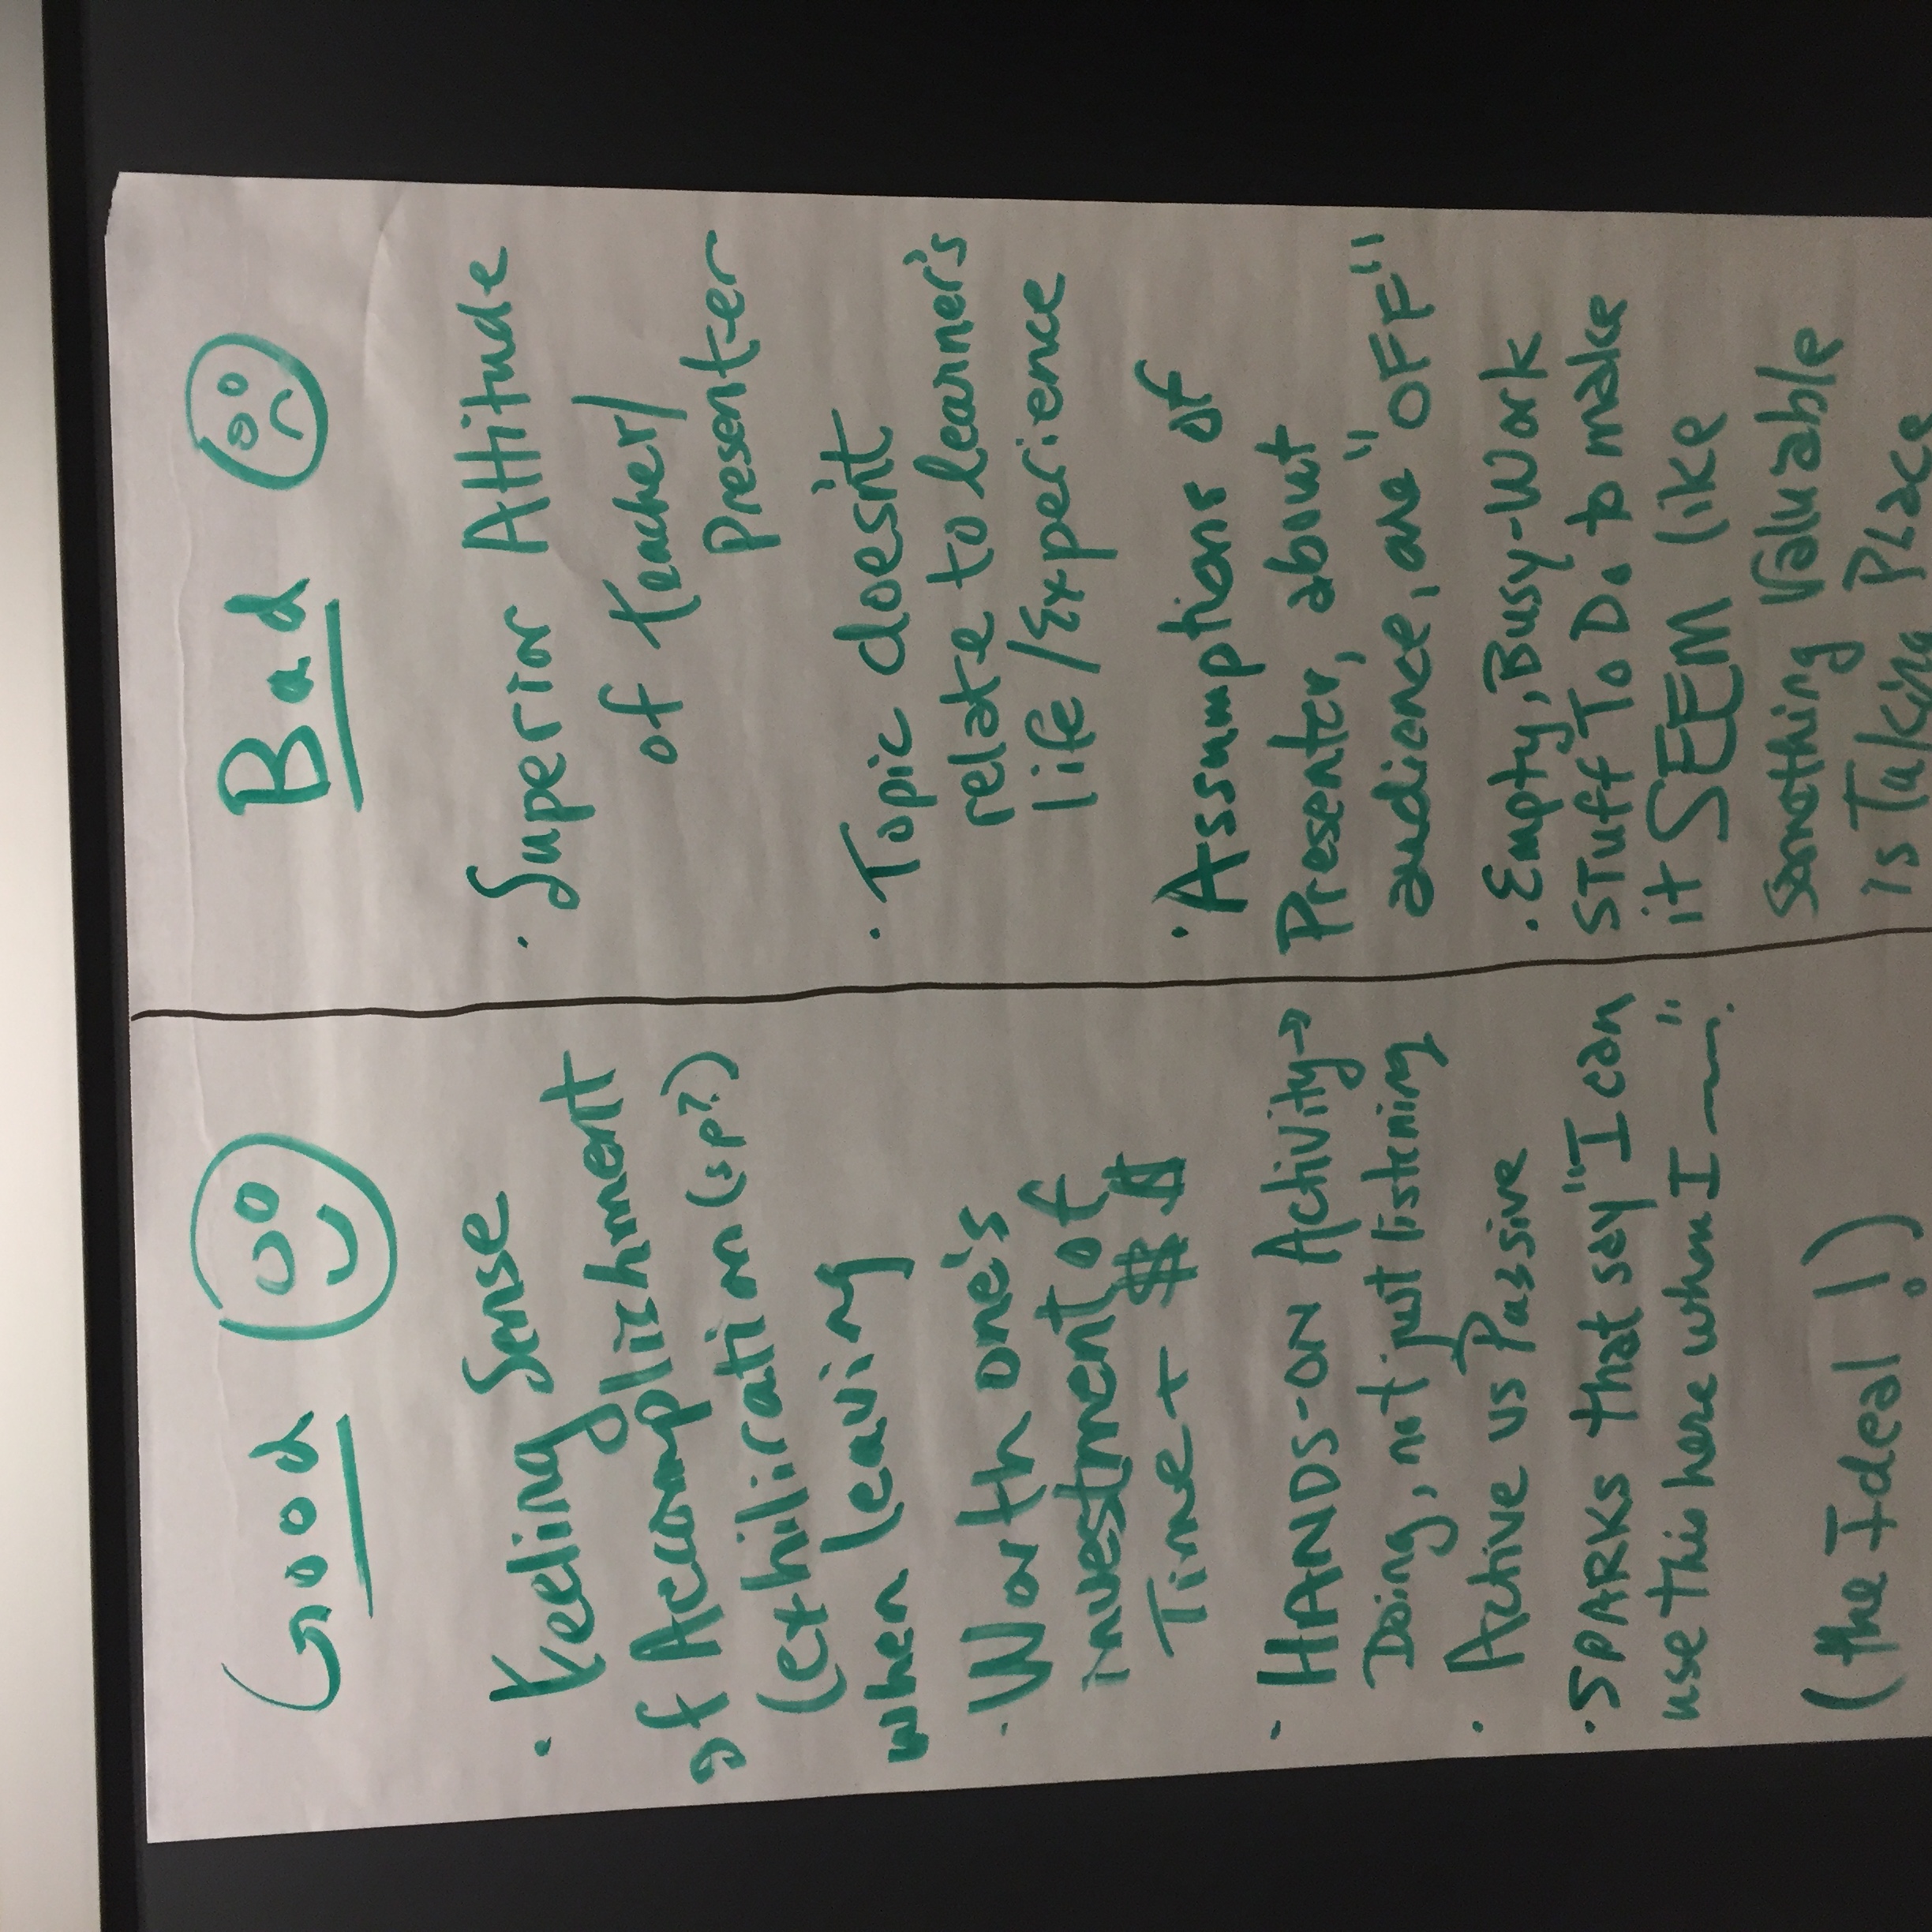 Good
· Feeling Sense
of Accomplishment
(exhiliration (sp?)
when leaving
· Worth one's
investment of
Time + $ $
· HANDS-ON Activity→
Doing, not just listening
· Active vs Passive
· SPARKS that say "I can
use this here when I ___"
(the Ideal!)
Bad
· Superior Attitude
of teacher/
presenter
· Topic doesn't
relate to learner's
life/Experience
· Assumptions of
Presenter, about
audience, are "OFF"
· Empty, Busy-Work
STuff To Do to make
it SEEM like
Something Valuable
is Taking Place